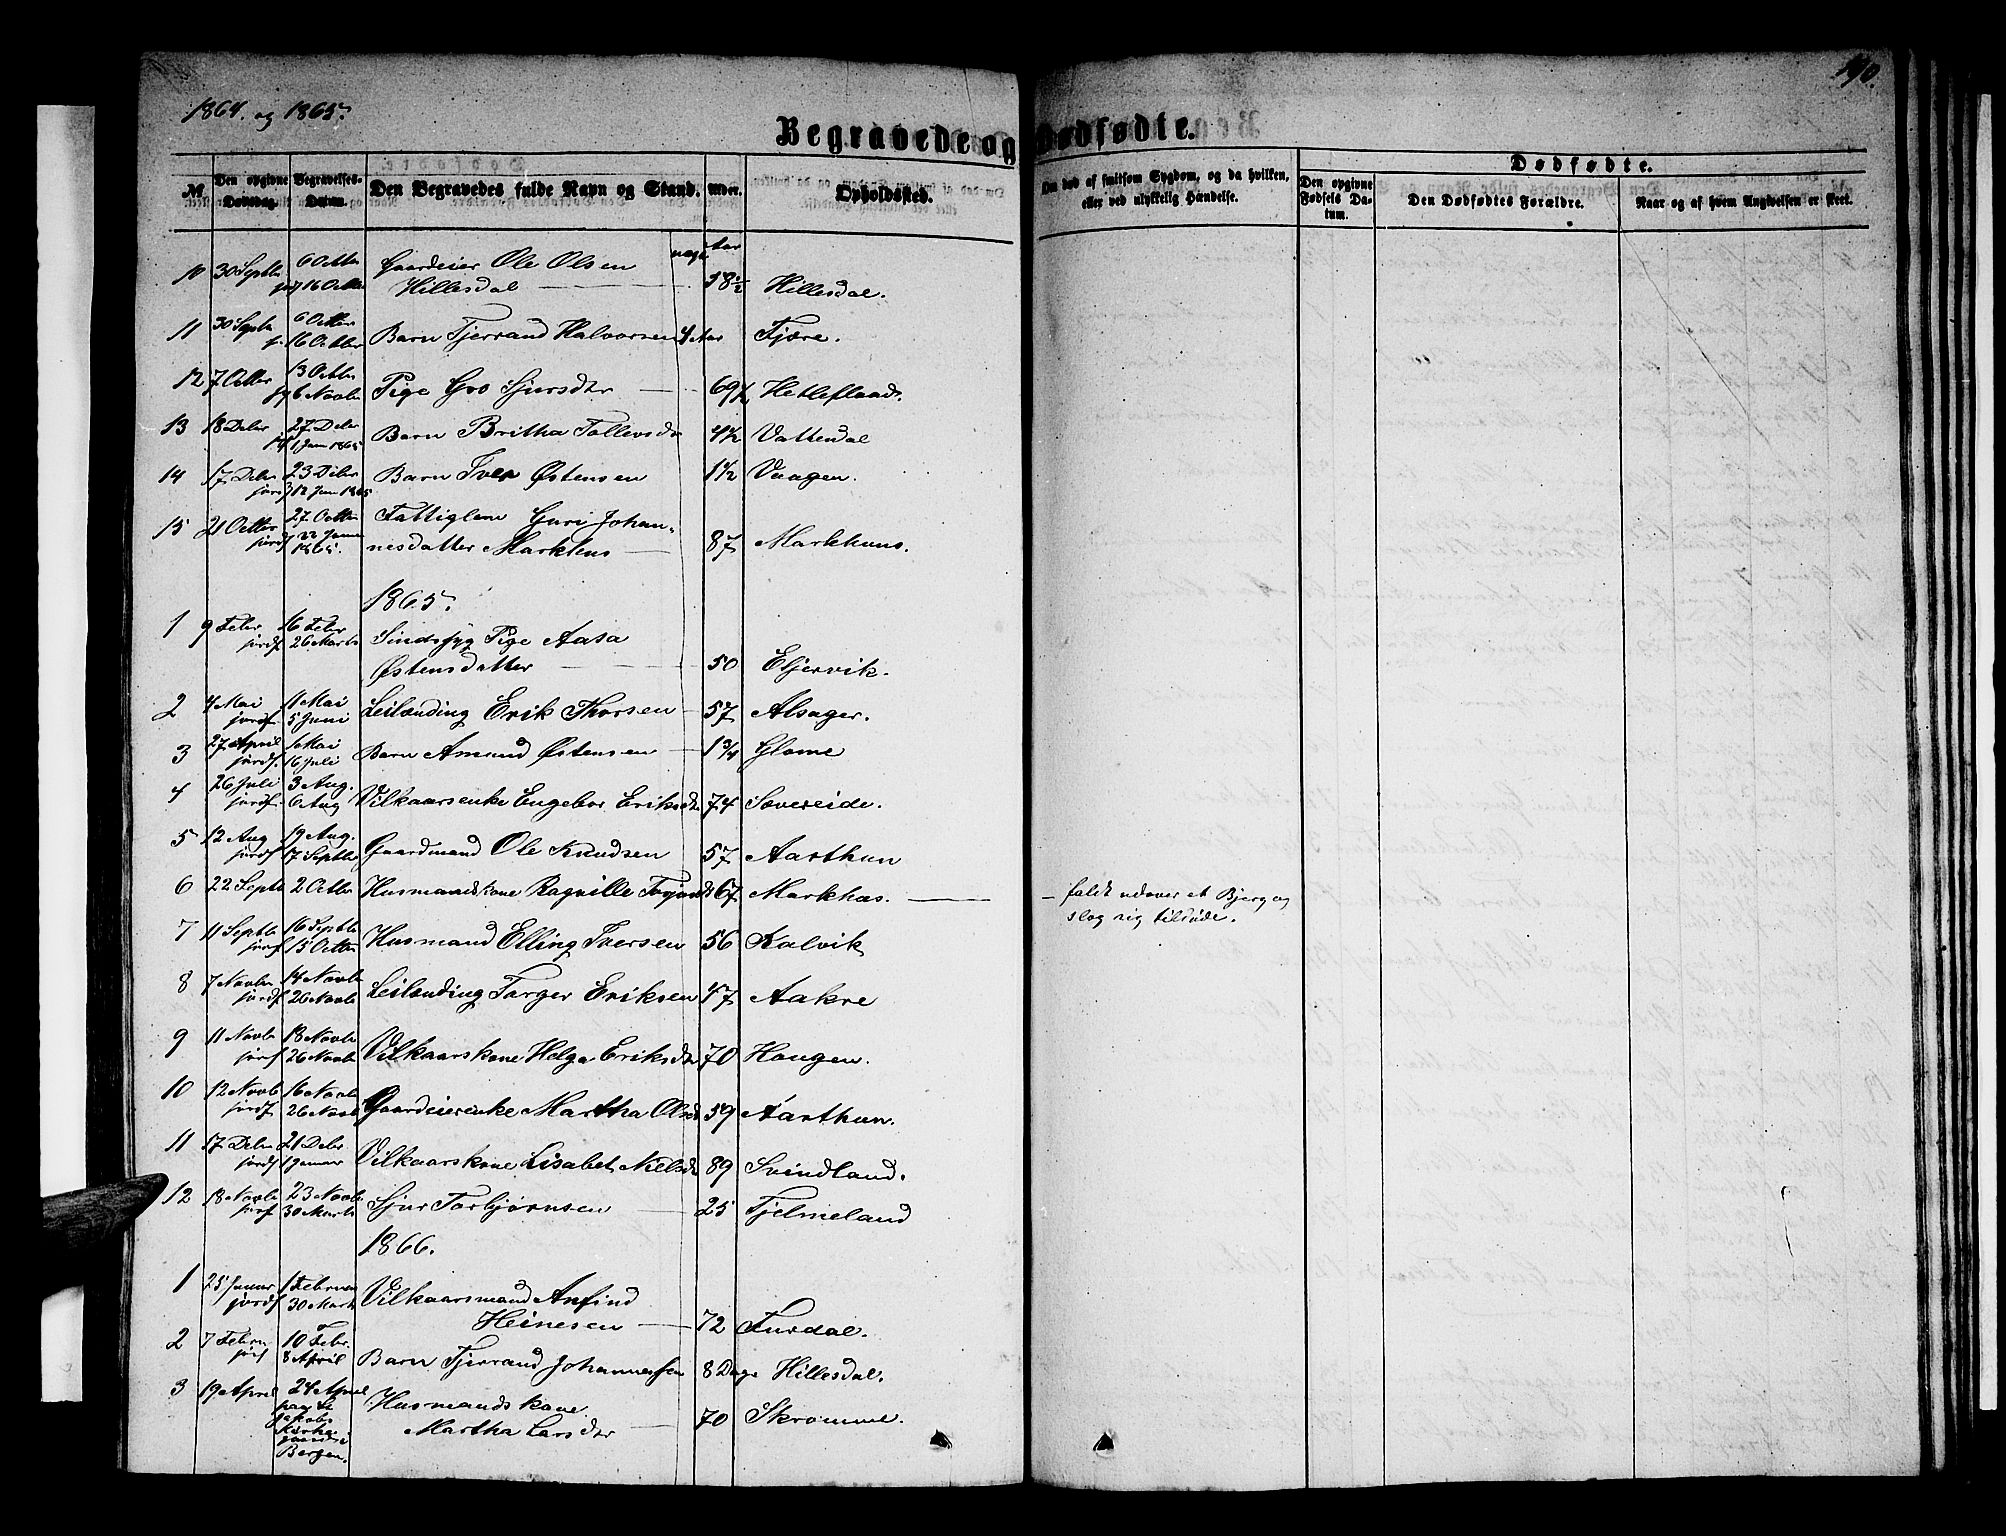 1864. og 1865.
190.
Begravede og Dødfødte.
№ Den opgivne Dødsdag. Begravelses-Datum. Den Begravedes fulde Navn og Stand. Alder. Opholdssted. Om død af smitsom Sygdom, og da hvilken, eller ved ulykkelig Hændelse. Dødfødte.
Den opgivne Fødsels Datum. Den Dødfødtes Forældre. Naar og af hvem Angivelsen er skeet.
10 30 Septbr 6 Octbr Gaardeier Ole Olsen Aar
16 Octbr Hillesdal 58½ Hillesdal.
11 30 Septb 6 Octbr
16 Octbr Barn Tjerrand Halvorsen 4 Aar Fjære.
12 7 Octbr 13 Octbr
6 Novbr Pige Gro Sjursdtr 69½ Hetlefland.
13 18 Debr 27 Debr
1 Jan 1865 Barn Britha Tollevsdr 4½ Vattendal
14 17 Debr 23 Debr
jordf 12 Jan 1865 Barn Iver Østensen 1½ Vaagen.
15 21 Octbr 27 Octbr Fattiglem Guri Johan-
jordf 22 Janu 1865. nesdatter Markhus 87 Markhuus.
1865.
1 9 Febr 16 Febr
jordf 26 Marts Sindssyg Pige Aasa
Østensdatter 50 Eljervik.
2 4 Mai 11 Mai
jordf. 5 Juni Leilending Erik Thorsen 57 Alsager.
3 27 April 1 Mai
jordf. 16 Juli Barn Amund Østensen 1¾ Glome
4 26 Juli 3 Aug.
jordf 6 Aug Vilkaarsenke Engebor Eriksdr 74 Sævereide.
5 12 Aug 19 Aug.
jordf 17 Septbr Gaardmand Ole Knudsen 57 Aarthun
6 22 Septb 2 Octbr Husmandskone Ragnille 67 Markhus. faldt udover et Bjerg og
slog sig tildøde.
7 11 Septbr 16 Septbr
jordf 15 Octbr Husmand Elling Iversen 56 Kalvik
8 7 Novbr 14 Novbr
jordf 26 Novbr Leilending Torger Eriksen 47 Aakre
9 11 Novbr 18 Novbr
jorf 26 Novbr Vilkaarskone Helga Eriksdr 70 Haugen.
10 12 Novbr 16 Novbr
jordf 26 Novb Gaardeierenke Martha Olsd 59 Aarthun.
11 17 Debr 21 Debr
jordf 1 Januar Vilkaarskone Lisabet Nielsdr 89 Svindland.
12 18 Novbr 23 Novbr
jorf 30 Marts Sjur Torbjørnsen 25 Fjelmeland
1866.
1 25 Januar 1 Februar
jordf 30 Marts Vilkaarsmand Anfind
Heinesen 72 Furdal.
2 7 Febru 10 Febr.
jorf 8 April Barn Tjerrand Johannessen 8 Dage Hillesdal.
3 19 April 24 April Husmandskone
paa St
Jakobs Martha Larsdtr 70 Skromme.
Kirke-
gaard i
Bergen.